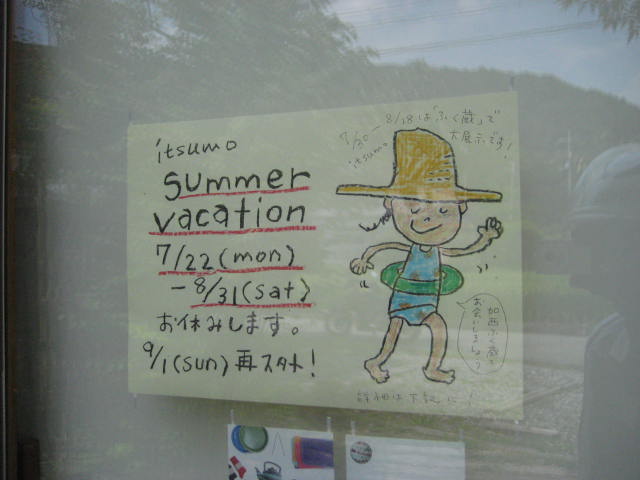 itsumo
summer
vacation
7/22(mon)
-8/31(sat)
お休みします。
9/1(sun)再スタート!
7/30-8/18は「ふく蔵」で
itsumo 大展示です!
加西ふく蔵で
お会いしましょう
詳細は下記に!